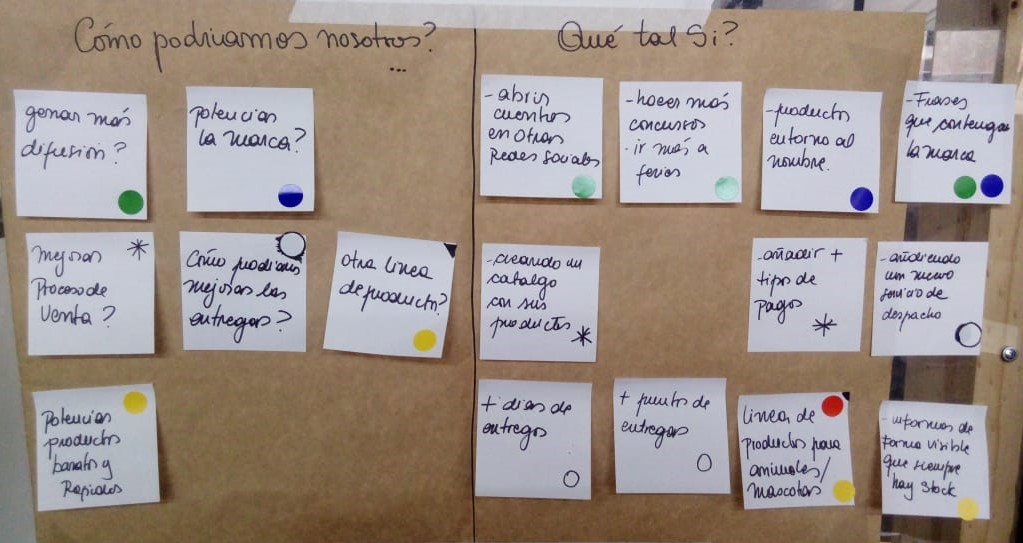 Cómo podríamos nosotros?
...
generar más
difusión?
potenciar
la marca?
mejorar
Proceso de
Venta?
Cómo podriamos
mejorar las
entregas?
otra linea
de producto?
Potenciar
productos
baratos y
Rapidos
Qué tal Si?
-abrir
cuentas
en otras
Redes sociales
-hacer más
concursos
-ir más a
ferias
-productos
entorno al
nombre.
-Frases
que contengan
la marca
-creando un
catalgo
con sus
productos
-añadir +
tipos de
pagos
-añadiendo
un nuevo
servicio de
despacho
+ dias de
entregas
+ puntos de
entregas
linea de
productos para
animales/
mascotas
-informar de
forma visible
que siempre
hay stock